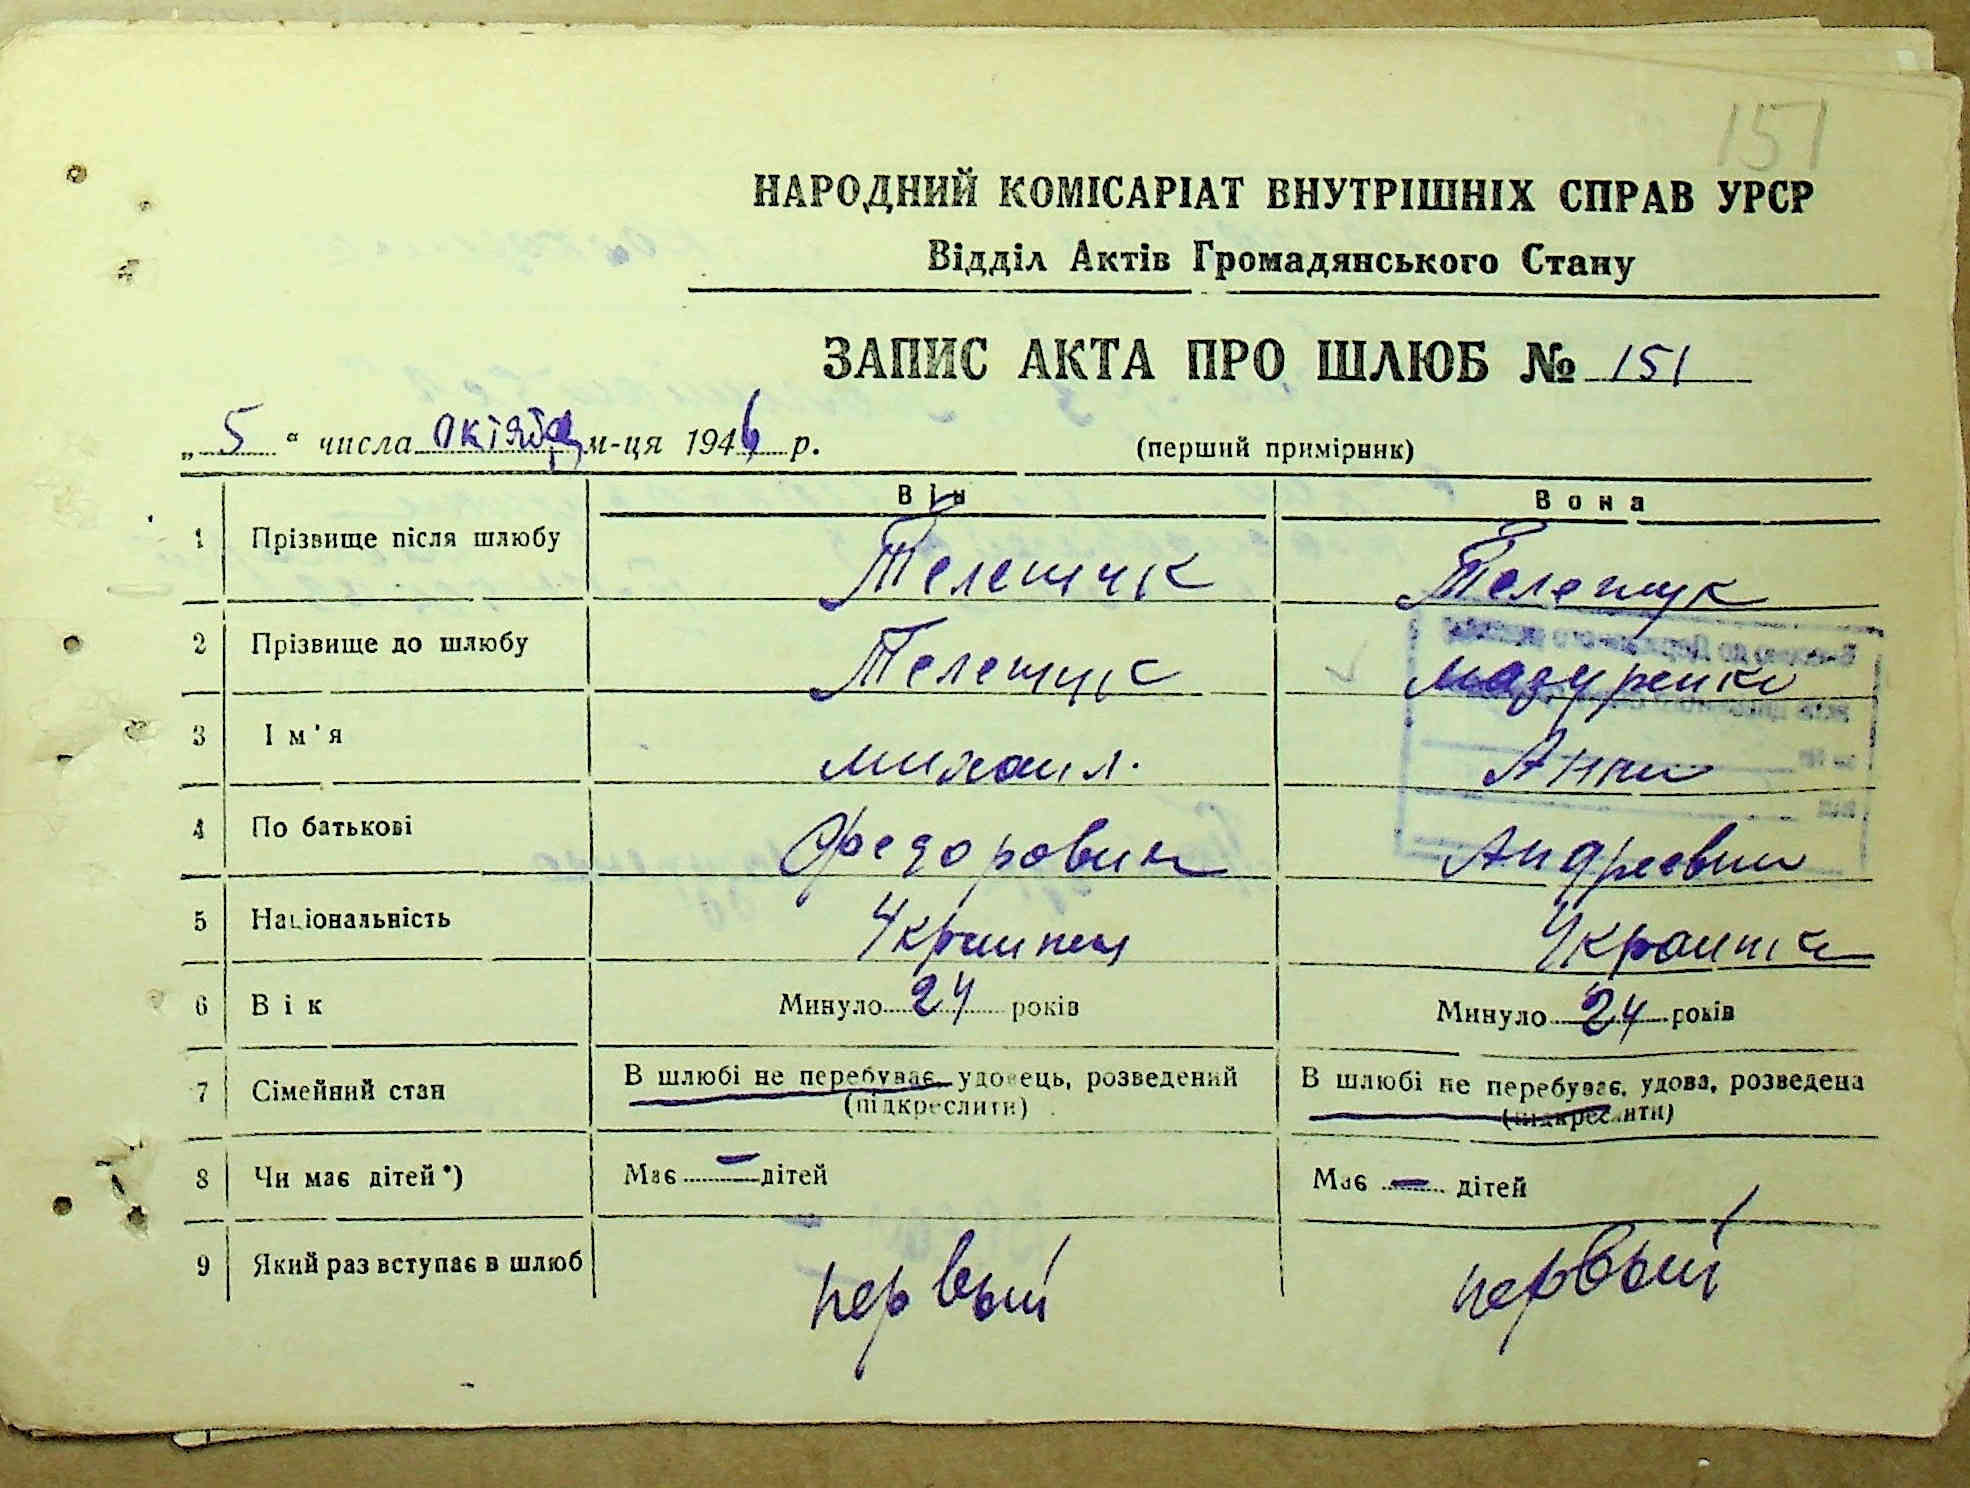 151
НАРОДНИЙ КОМІСАРІАТ ВНУТРІШНІХ СПРАВ УРСР
Відділ Актів Громадянського Стану
ЗАПИС АКТА ПРО ШЛЮБ № 151
„ 5 “ числа октября м-ця 1946 р. (перший примірник)
Він Вона
1 Прізвище після шлюбу Телещук Телещук
2 Прізвище до шлюбу Телещук Мазуренко
3 Ім'я Михаил. Анна
4 По батькові Федорович Андреевна
5 Національність Украинец Украинка
6 Вік Минуло 24 років Минуло 24 років
7 Сімейний стан В шлюбі не перебуває, удовець, розведений В шлюбі не перебуває, удова, розведена
(підкреслити) (підкреслити)
8 Чи має дітей*) Має — дітей Має — дітей
9 Який раз вступає в шлюб первый первый